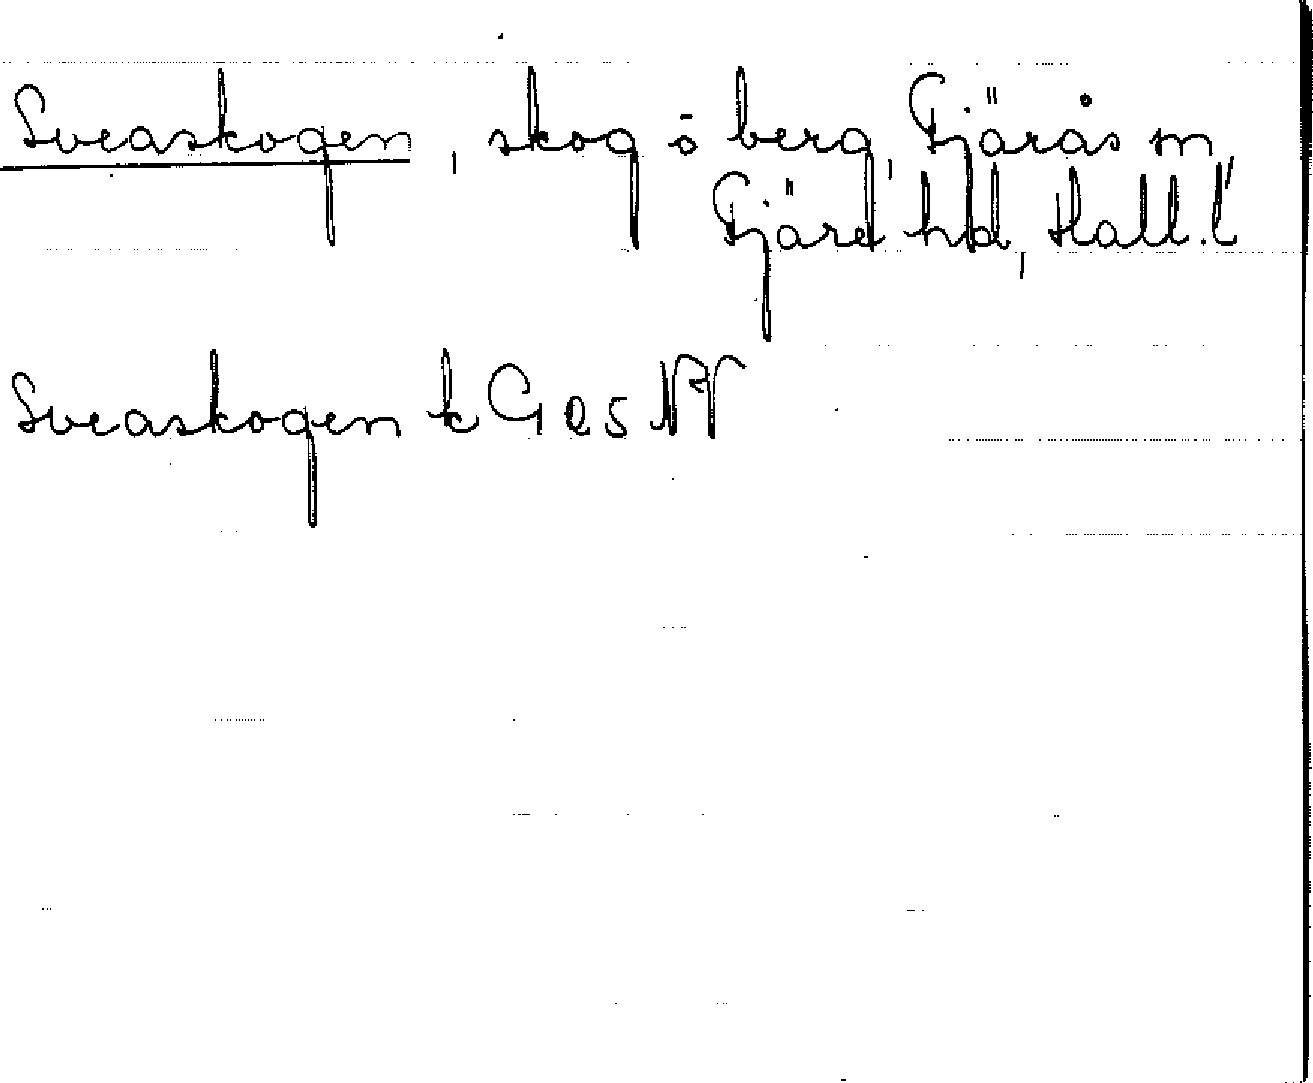 Sveaskogen, skog o berg, Fjärås sn,
Fjäre hd, Hall. l
Sveaskogen k G 25